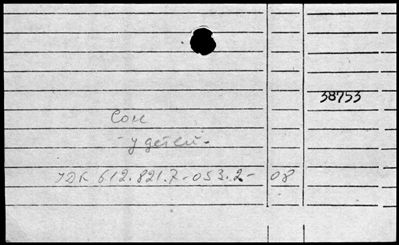 38753
Сон
- у детей.
УДК 612.821.7-053.2-08